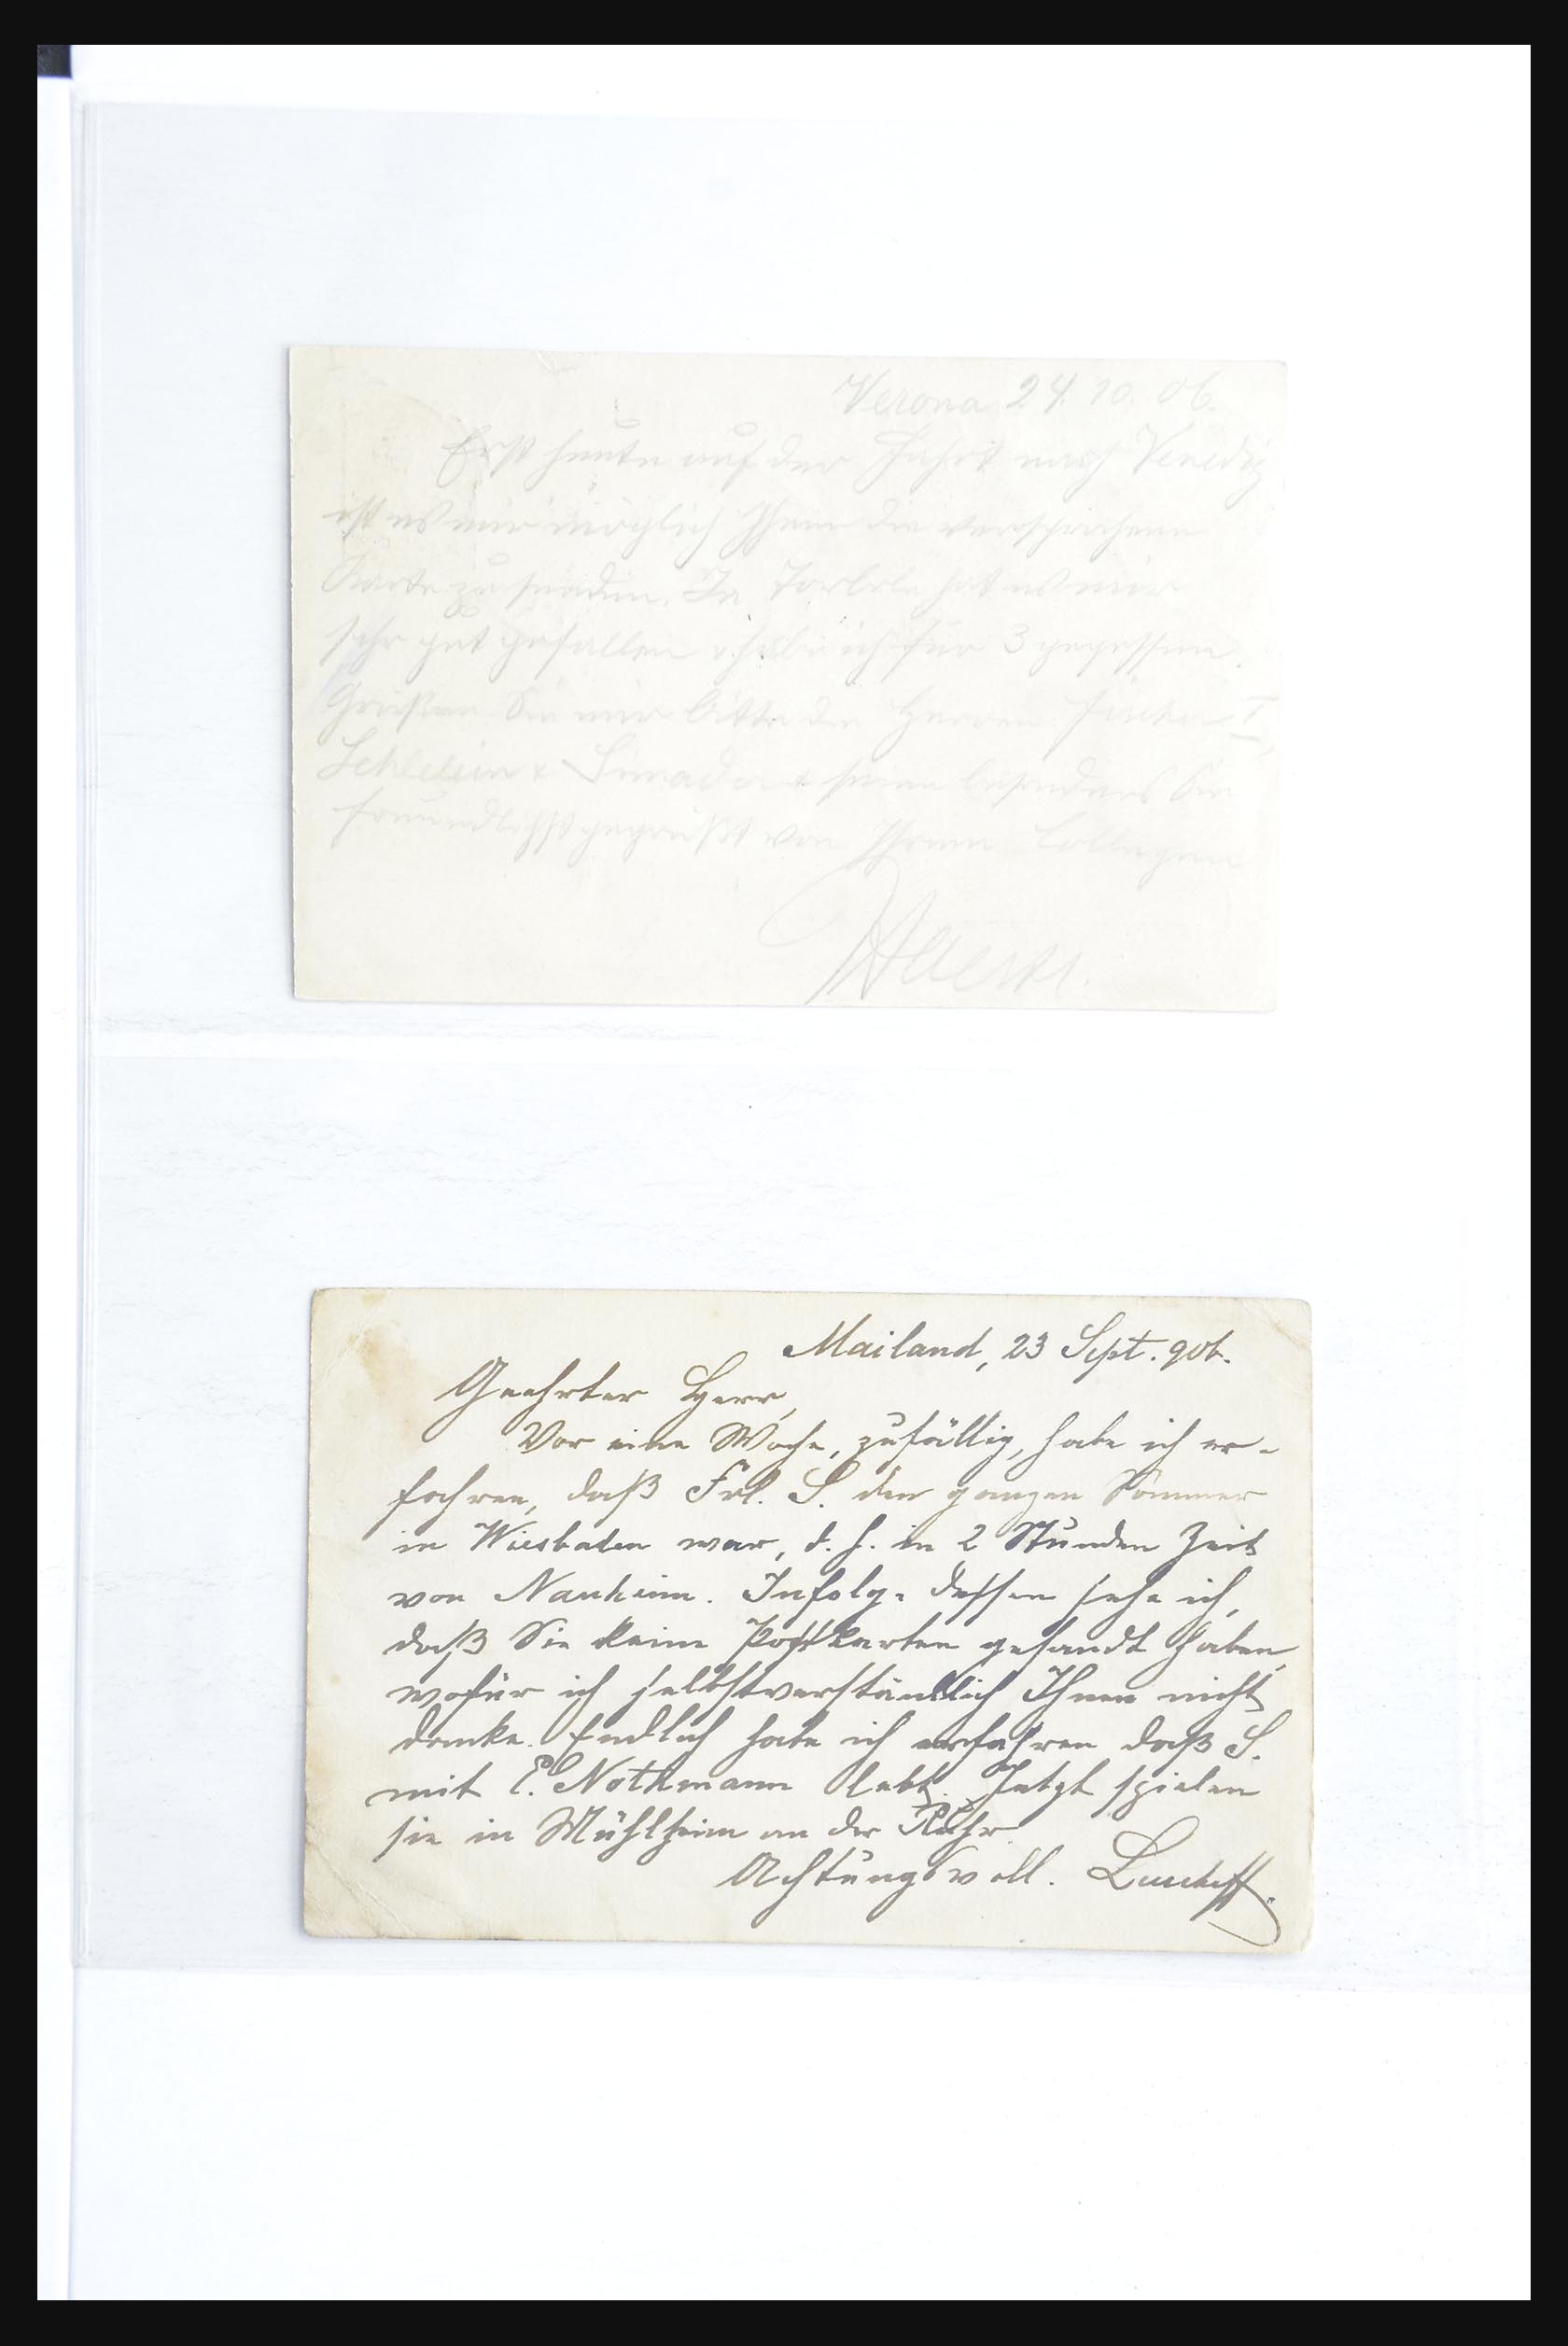 Verona 24. 10. 06.
Erst heute auf der Fahrt nach Venedig
ist es mir möglich Ihnen die versprochene
Karte zu senden. In Torbole hat es mir
sehr gut gefallen & habe ich für 3 gegessen.
Grüßen Sie mir bitte die Herren I,
& seien besonders Sie
freundlichst gegrüßt von Ihrem Collegen
Mailand, 23 Sept. 906.
Geehrter Herr,
Vor eine Woche, zufällig, habe ich er-
fahren, daß Frl. S. den ganzen Sommer
in Wiesbaden war, d. h. in 2 Stunden Zeit
von Nauheim. Infolge dessen sehe ich,
daß Sie keine Postkarten gesandt haben,
wofür ich selbstverständlich Ihnen nicht
danke. Endlich habe ich erfahren daß S.
mit E. Nothmann lebt. Jetzt spielen
sie in Mühlheim an der Ruhr.
Achtungsvoll.